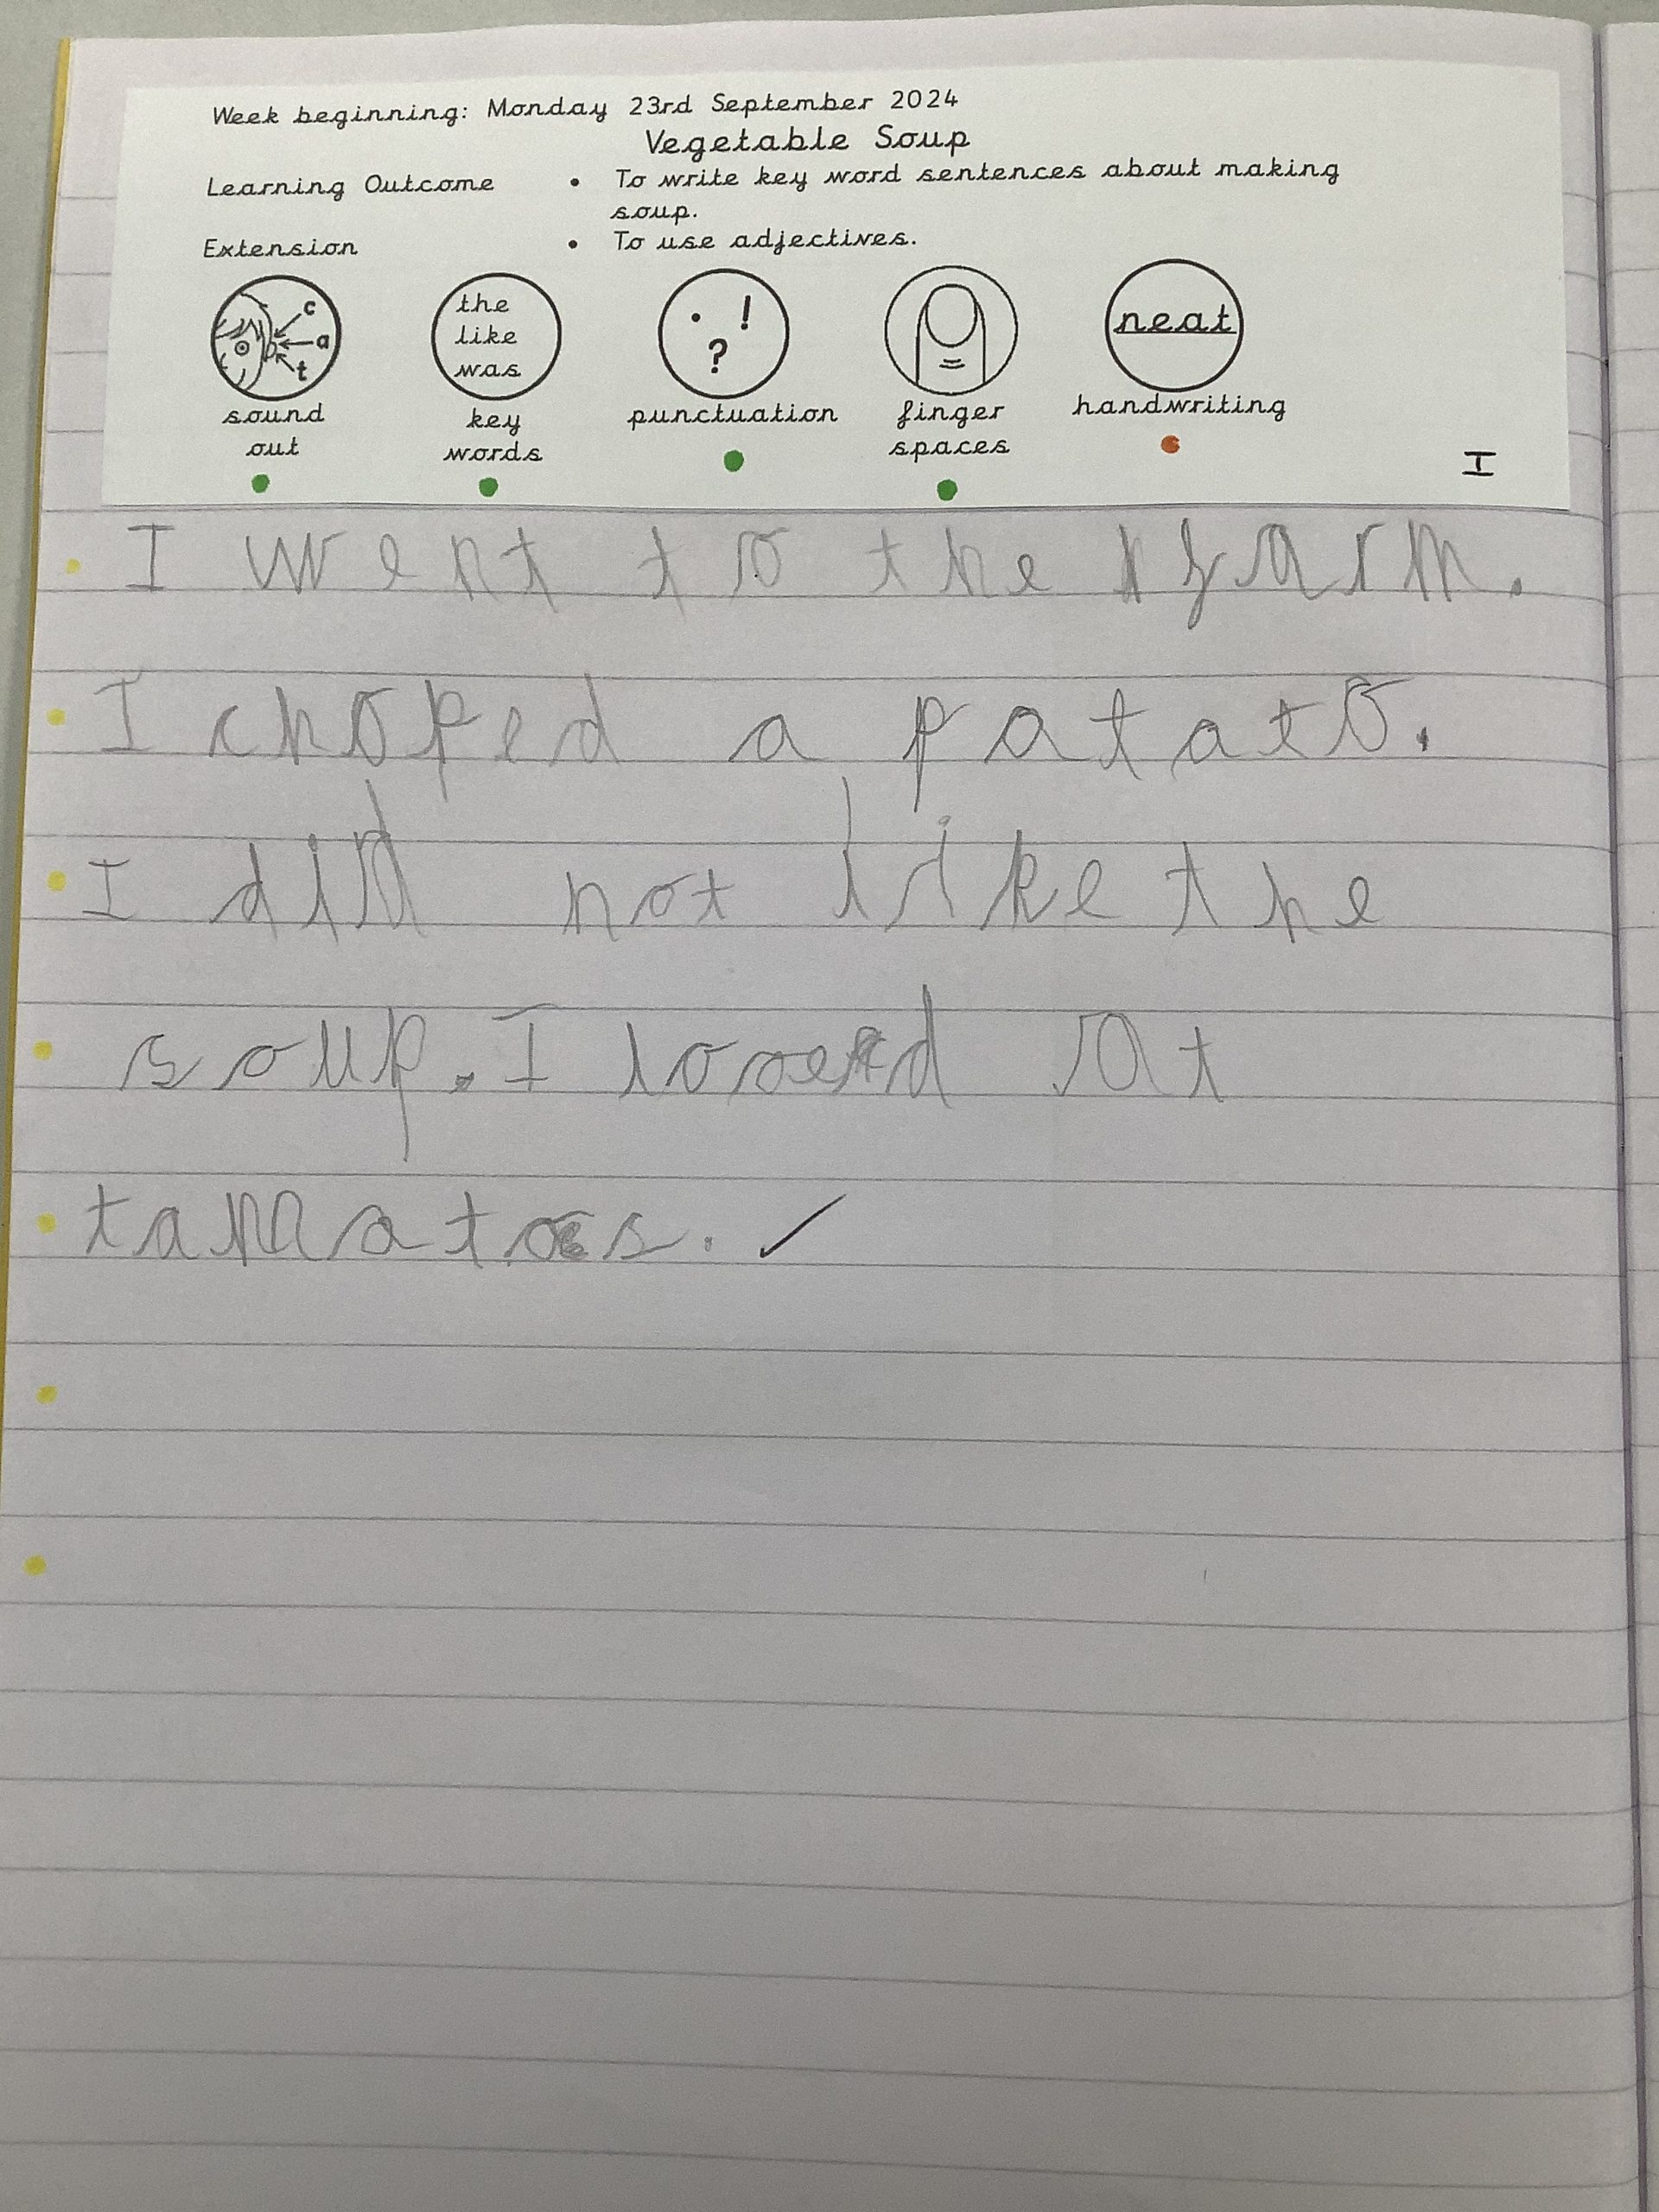 Week beginning: Monday 23rd September 2024
Vegetable Soup
Learning Outcome • To write key word sentences about making
soup.
Extension • To use adjectives.
c
a
t
the
like
was
. !
?
neat
sound
out
key
words
punctuation
finger
spaces
handwriting
I
I went to the farm.
I choped a patato.
I did not like the
soup. I
tamatoes. ✓